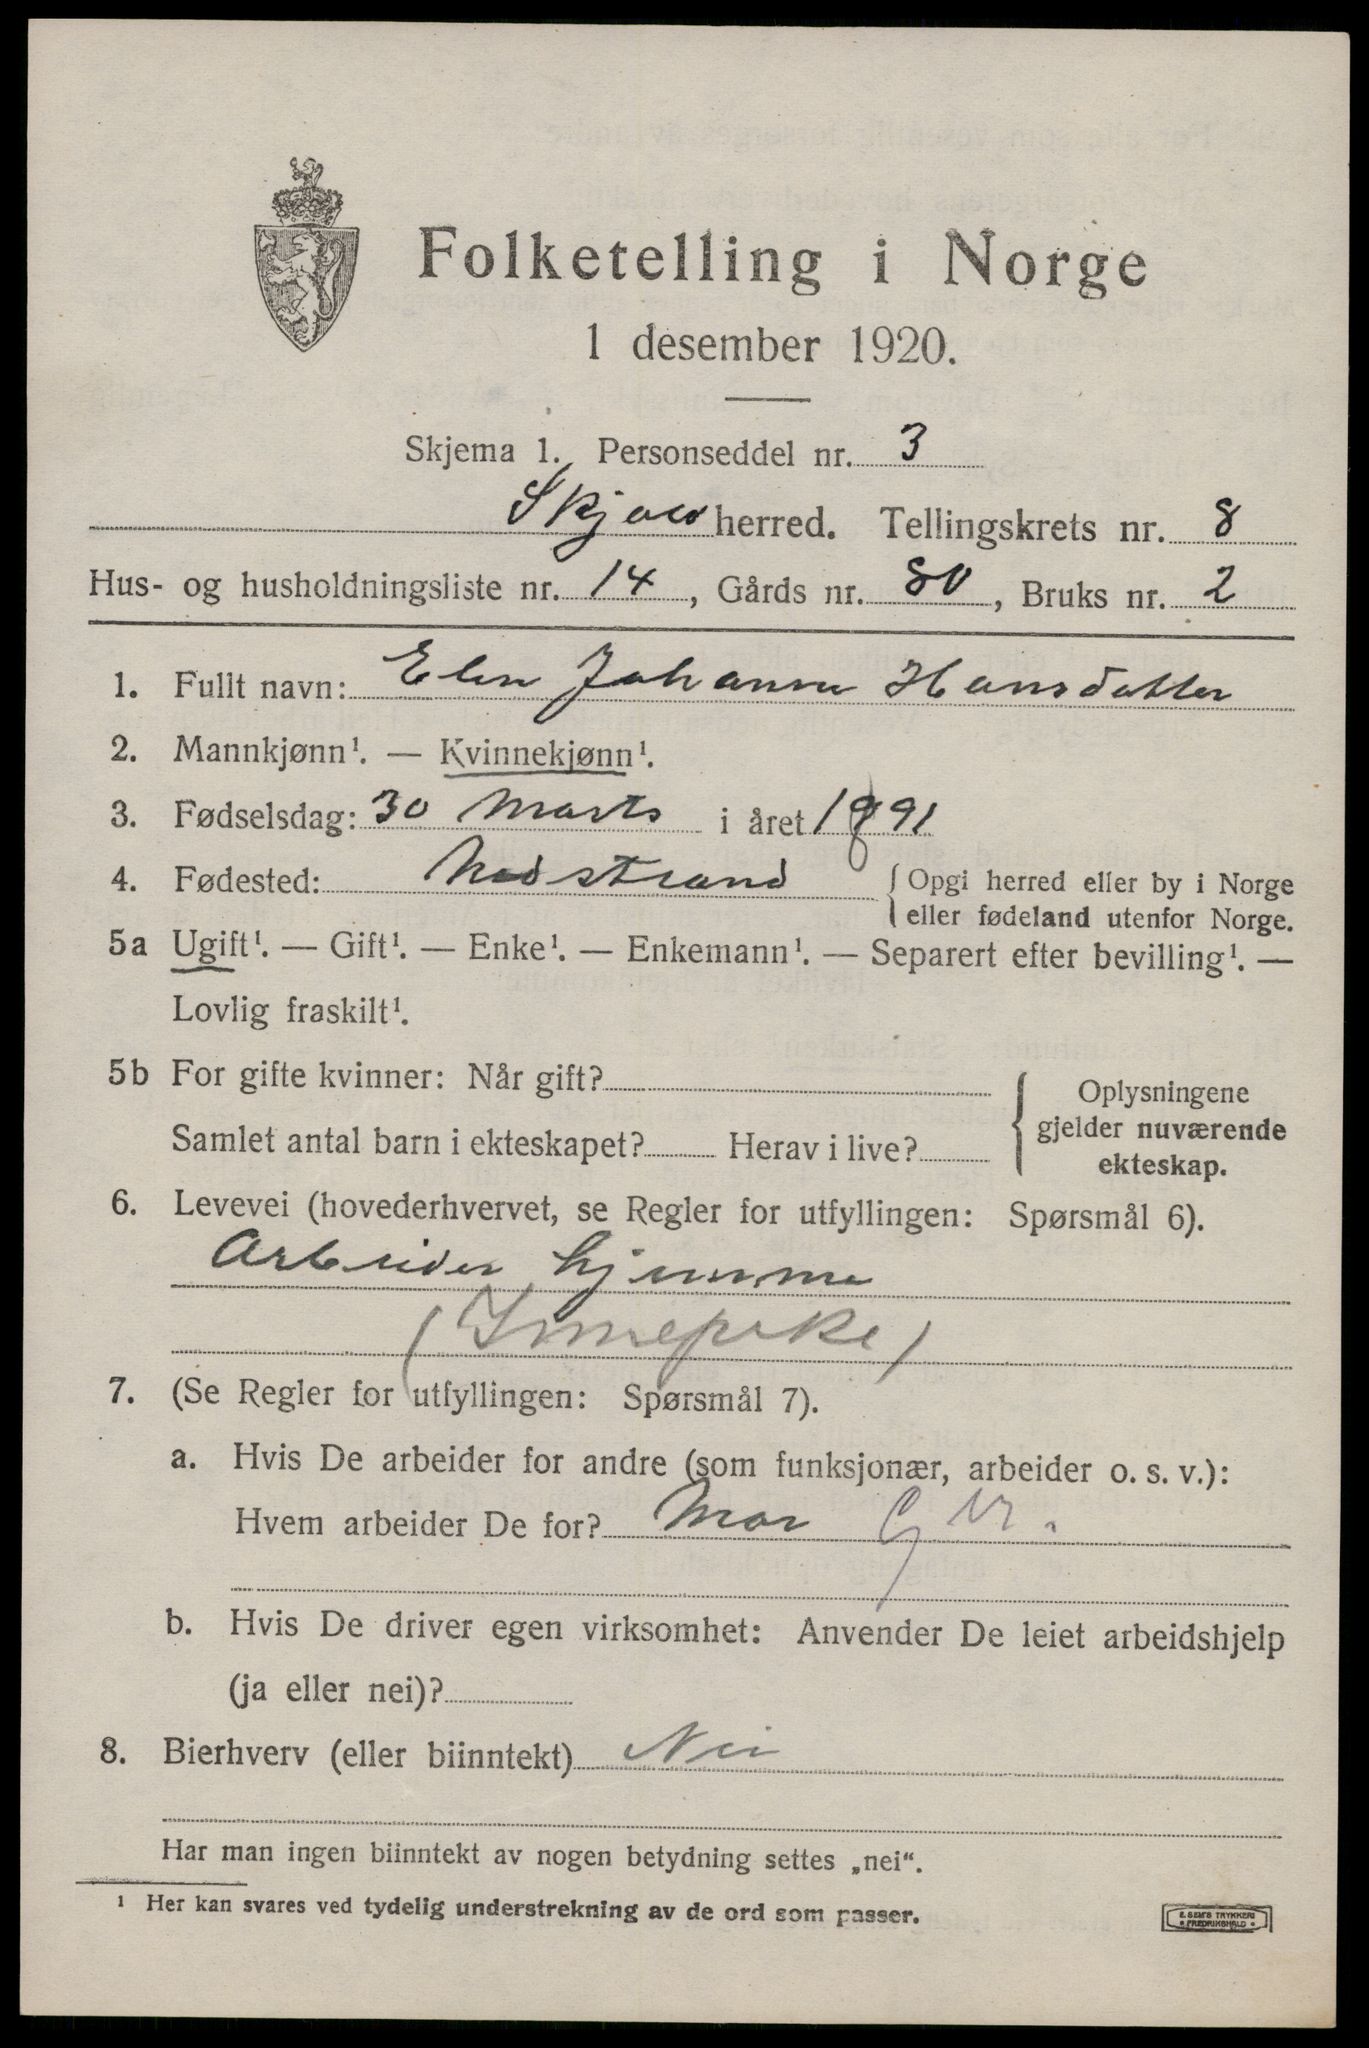 Folketelling i Norge
1 desember 1920.
Skjema 1. Personseddel nr. 3
Skjold herred. Tellingskrets nr. 8
Hus- og husholdningsliste nr. 14, Gårds nr. 80, Bruks nr. 2
1. Fullt navn: Elen Johanne Hansdatter
2. Mannkjønn¹. — Kvinnekjønn¹.
3. Fødselsdag: 30 Marts i året 1891
4. Fødested: Nedstrand { Opgi herred eller by i Norge
eller fødeland utenfor Norge.
5a Ugift¹. — Gift¹. — Enke¹. — Enkemann¹. — Separert efter bevilling¹. —
Lovlig fraskilt¹.
5b For gifte kvinner: Når gift?
Samlet antal barn i ekteskapet? Herav i live?
{ Oplysningene
gjelder nuværende
ekteskap.
6. Levevei (hovederhvervet, se Regler for utfyllingen: Spørsmål 6).
Arbeider hjemme
(Innepike)
7. (Se Regler for utfyllingen: Spørsmål 7).
a. Hvis De arbeider for andre (som funksjonær, arbeider o. s. v.):
Hvem arbeider De for? Mor
b. Hvis De driver egen virksomhet: Anvender De leiet arbeidshjelp
(ja eller nei)?
8. Bierhverv (eller biinntekt) Nei
Har man ingen biinntekt av nogen betydning settes „nei“.
¹ Her kan svares ved tydelig understrekning av de ord som passer.
E. SEM'S TRYKKERI
FREDRIKSHALD